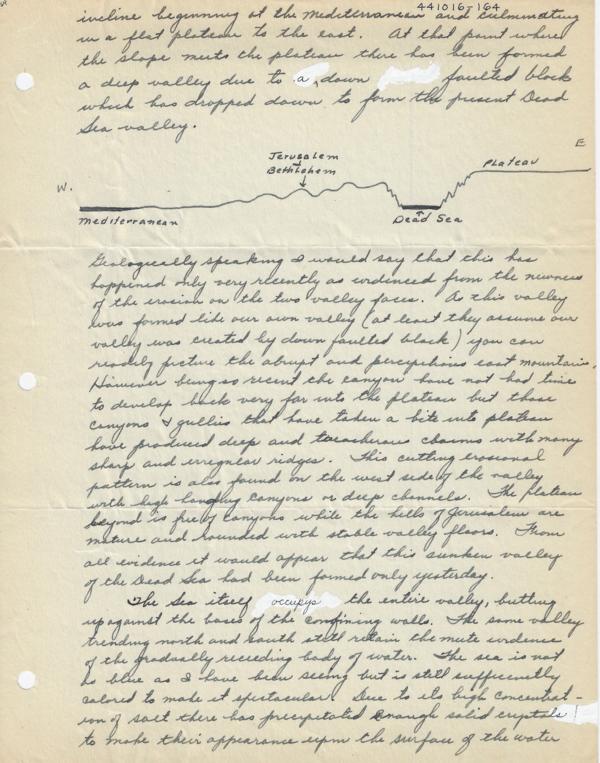 441016-164
incline beginning at the Mediterranean and culminating
in a flat plateau to the east. At that point where
the slope meets the plateau there has been formed
a deep valley due to a down faulted block
which has dropped down to form the present Dead
Sea valley.
E
Jerusalem
Bethlehem
Plateau
W.
Mediterranean
Dead Sea
Geologically speaking I would say that this has
happened only very recently as evidenced from the newness
of the erosion on the two valley faces. As this valley
was formed like our own valley (at least they assume our
valley was created by down faulted block) you can
readily picture the abrupt and percipitious east mountains.
However being so recent the canyon have not had time
to develop back very far into the plateau but those
canyons & gullies that have taken a bite into plateau
have produced deep and treacherous chasms with many
sharp and irregular ridges. This cutting erosional
pattern is also found on the west side of the valley
with high hanging canyons or deep channels. The plateau
beyond is free of canyons while the hills of Jerusalem are
mature and rounded with stable valley floors. From
all evidence it would appear that this sunken valley
of the Dead Sea had been formed only yesterday.
The Sea itself occupys the entire valley, butting
up against the bases of the confining walls. The same valley
trending north and south still retain the mute evidence
of the gradually receeding body of water. The sea is not
as blue as I have been seeing but is still sufficiently
colored to make it spectacular. Due to its high concentrat-
ion of salt there has precipitated enough solid crystals
to make their appearance upon the surface of the water